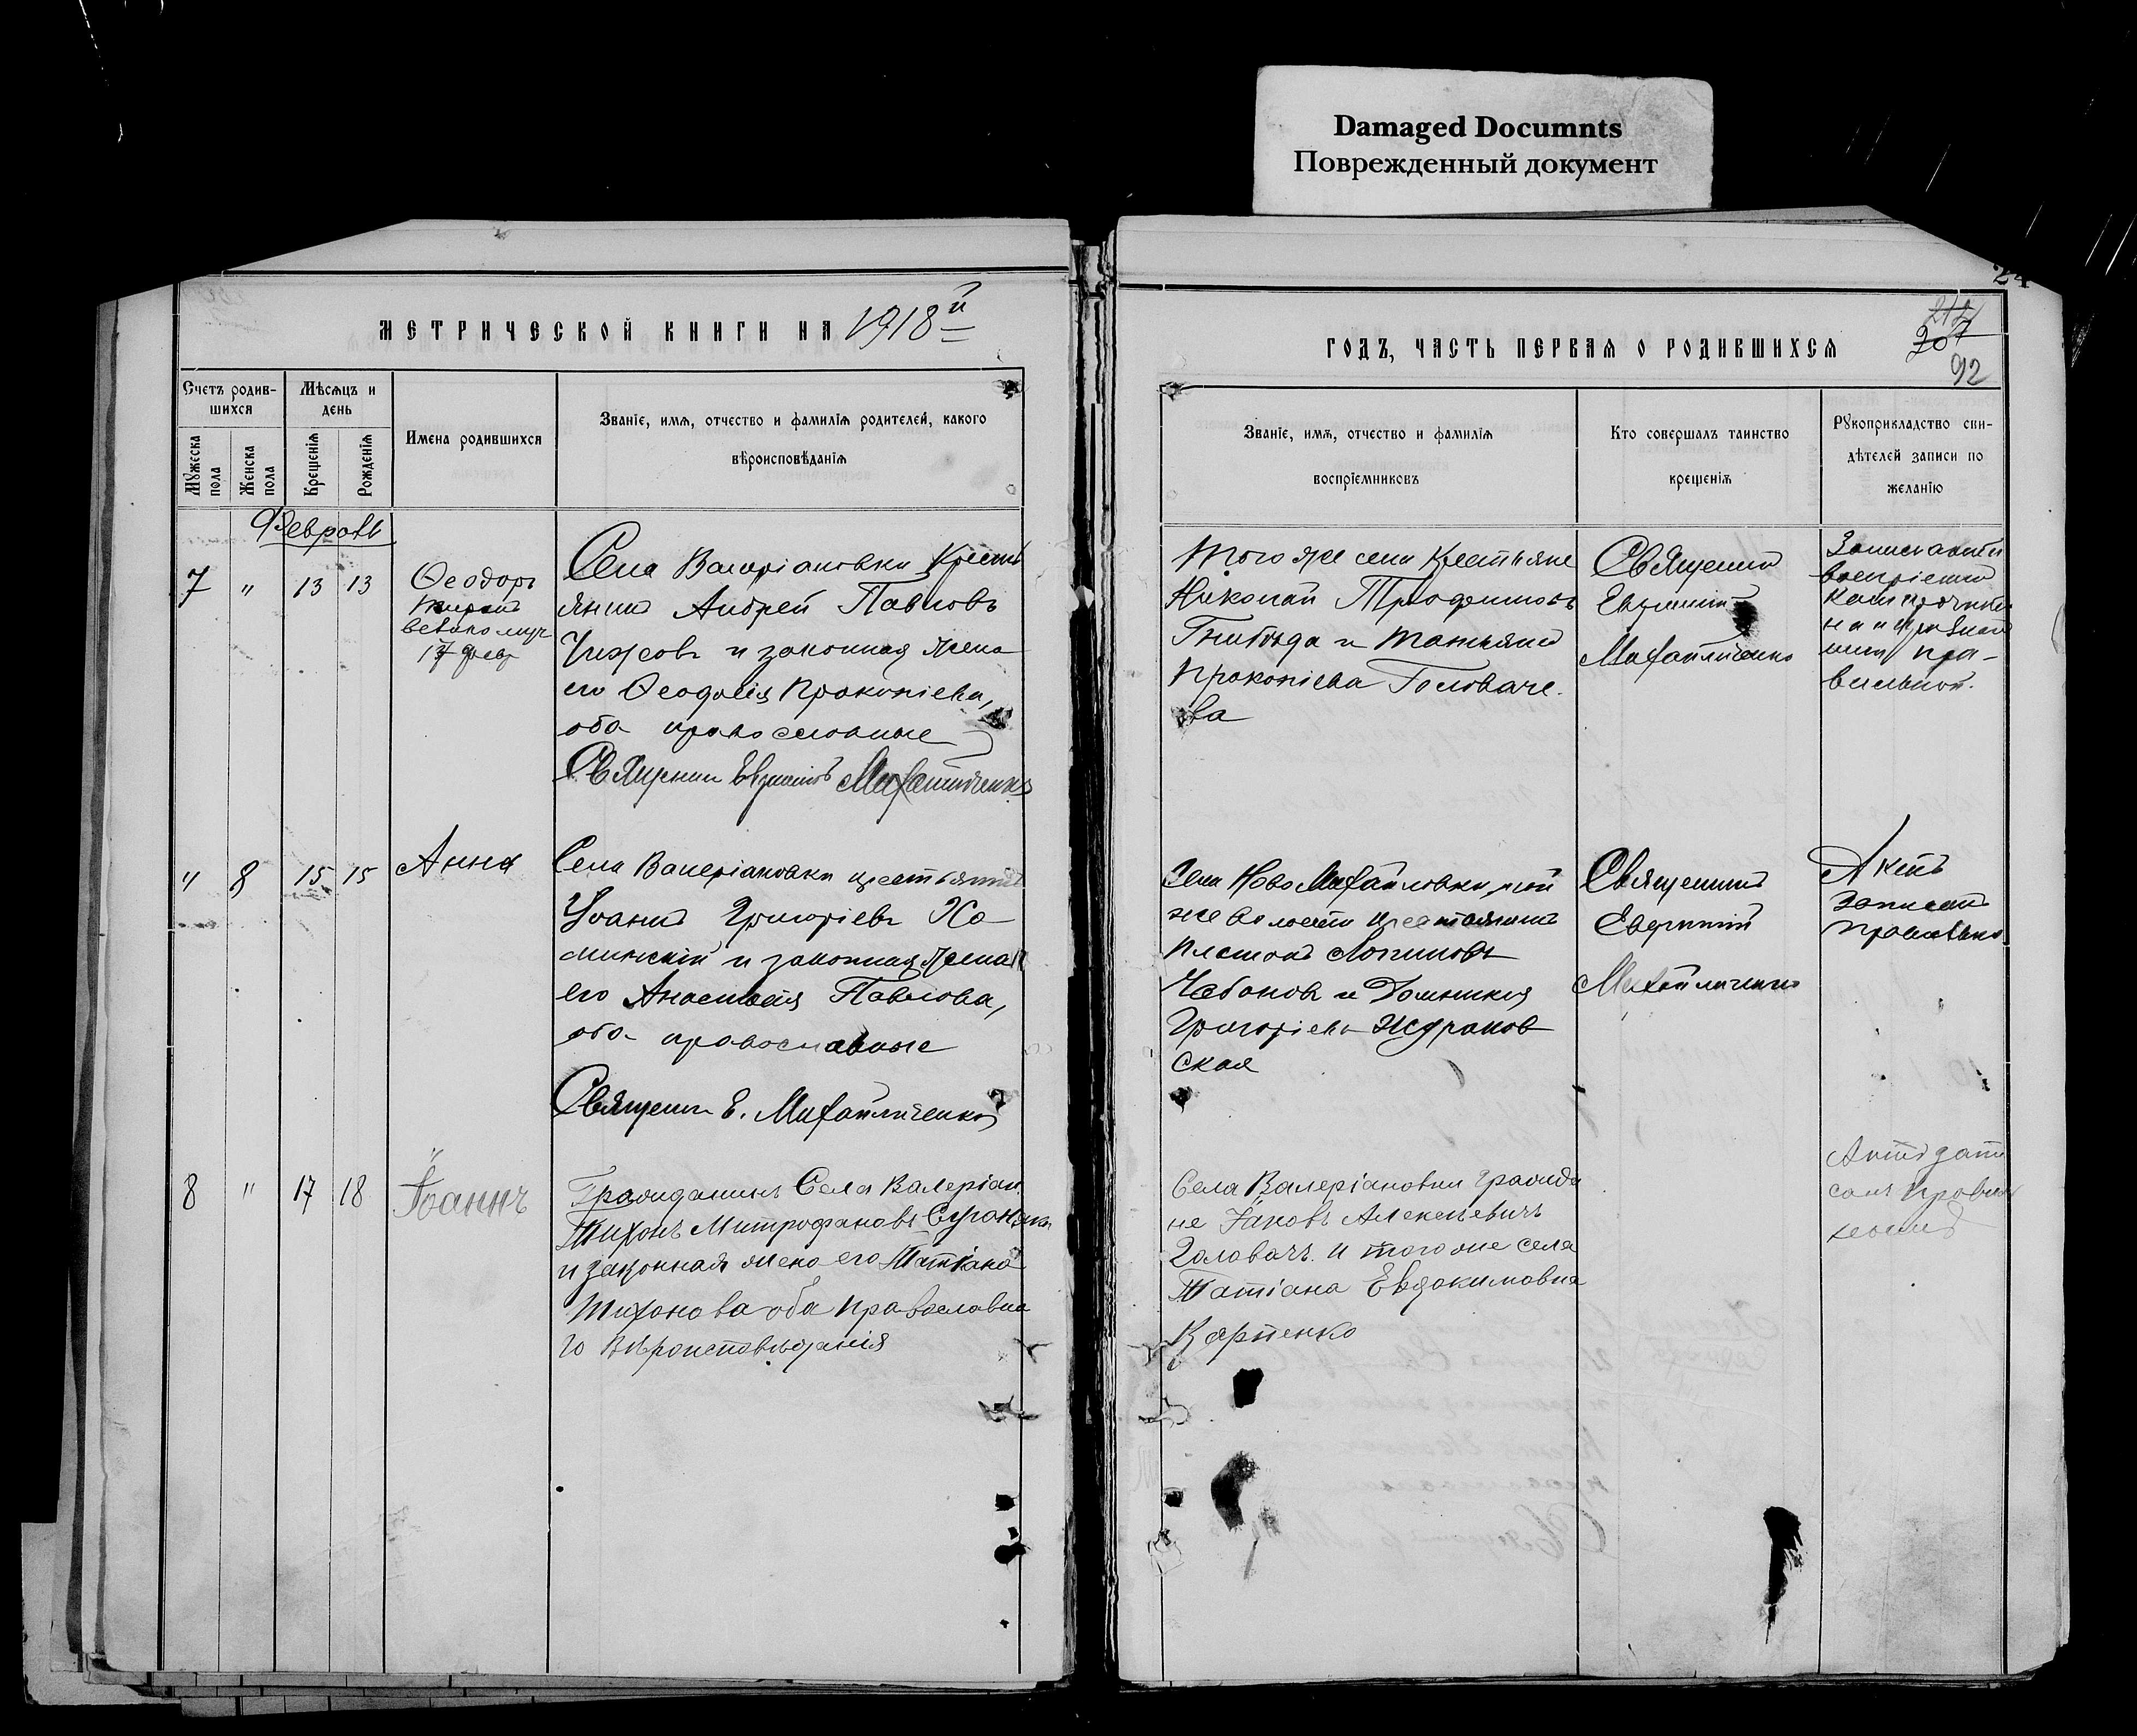 Damaged Documnts
Поврежденный документ
24
МЕТРИЧЕСКОЙ КНИГИ НА 1918й
ГОДЪ, ЧАСТЬ ПЕРВАЯ О РОДИВШИХСЯ
212
207
92
Счетъ родив-
шихся
Мѣсяцъ и
день
Мужеска
пола
Женска
пола
Крещенія
Рожденія
Имена родившихся
Званіе, имя, отчество и фамилія родителей, какого
вѣроисповѣданія
Званіе, имя, отчество и фамилія
воспріемниковъ
Кто совершалъ таинство
крещенія
Рукоприкладство сви-
дѣтелей записи по
желанію
Февраль
7 " 13 13
Ѳеодоръ
17 февр
Села Валеріановки Кресть
янинъ Андрей Павловъ
Чижовъ и законная жена
его Ѳеодосія Прокопіева,
оба православные
Священникъ Евфимій Михайличенко
Того же села Крестьяне
Николай
и Татьяна
Прокопіева Головаче-
ва
Священникъ
Евфимій
Михайличенко
" 8 15 15
Анна
Села Валеріановки крестьянинъ
Іоаннъ Григоріевъ Хо-
минскій и законная жена
его Анастасія Павлова,
оба православные
Священникъ Е. Михайличенко
Села Ново Михайловки, той
же волости крестьянинъ
Платонъ Логиновъ
Чабановъ и Домникія
Григоріева Жураков
ская
Священникъ
Евфимій
Михайличенко
Актъ
записанъ
правильно
8 " 17 18
Іоаннъ
Гражданинъ Села Валеріан.
Тихонъ Митрофановъ
и законная жена его Татіана
Тихонова оба православна
го Вѣроисповѣданія
Села Валеріановки гражда
не Іаковъ Алексѣевичъ
Головачъ и того же села
Татіана Евдокимовна
Карпенко